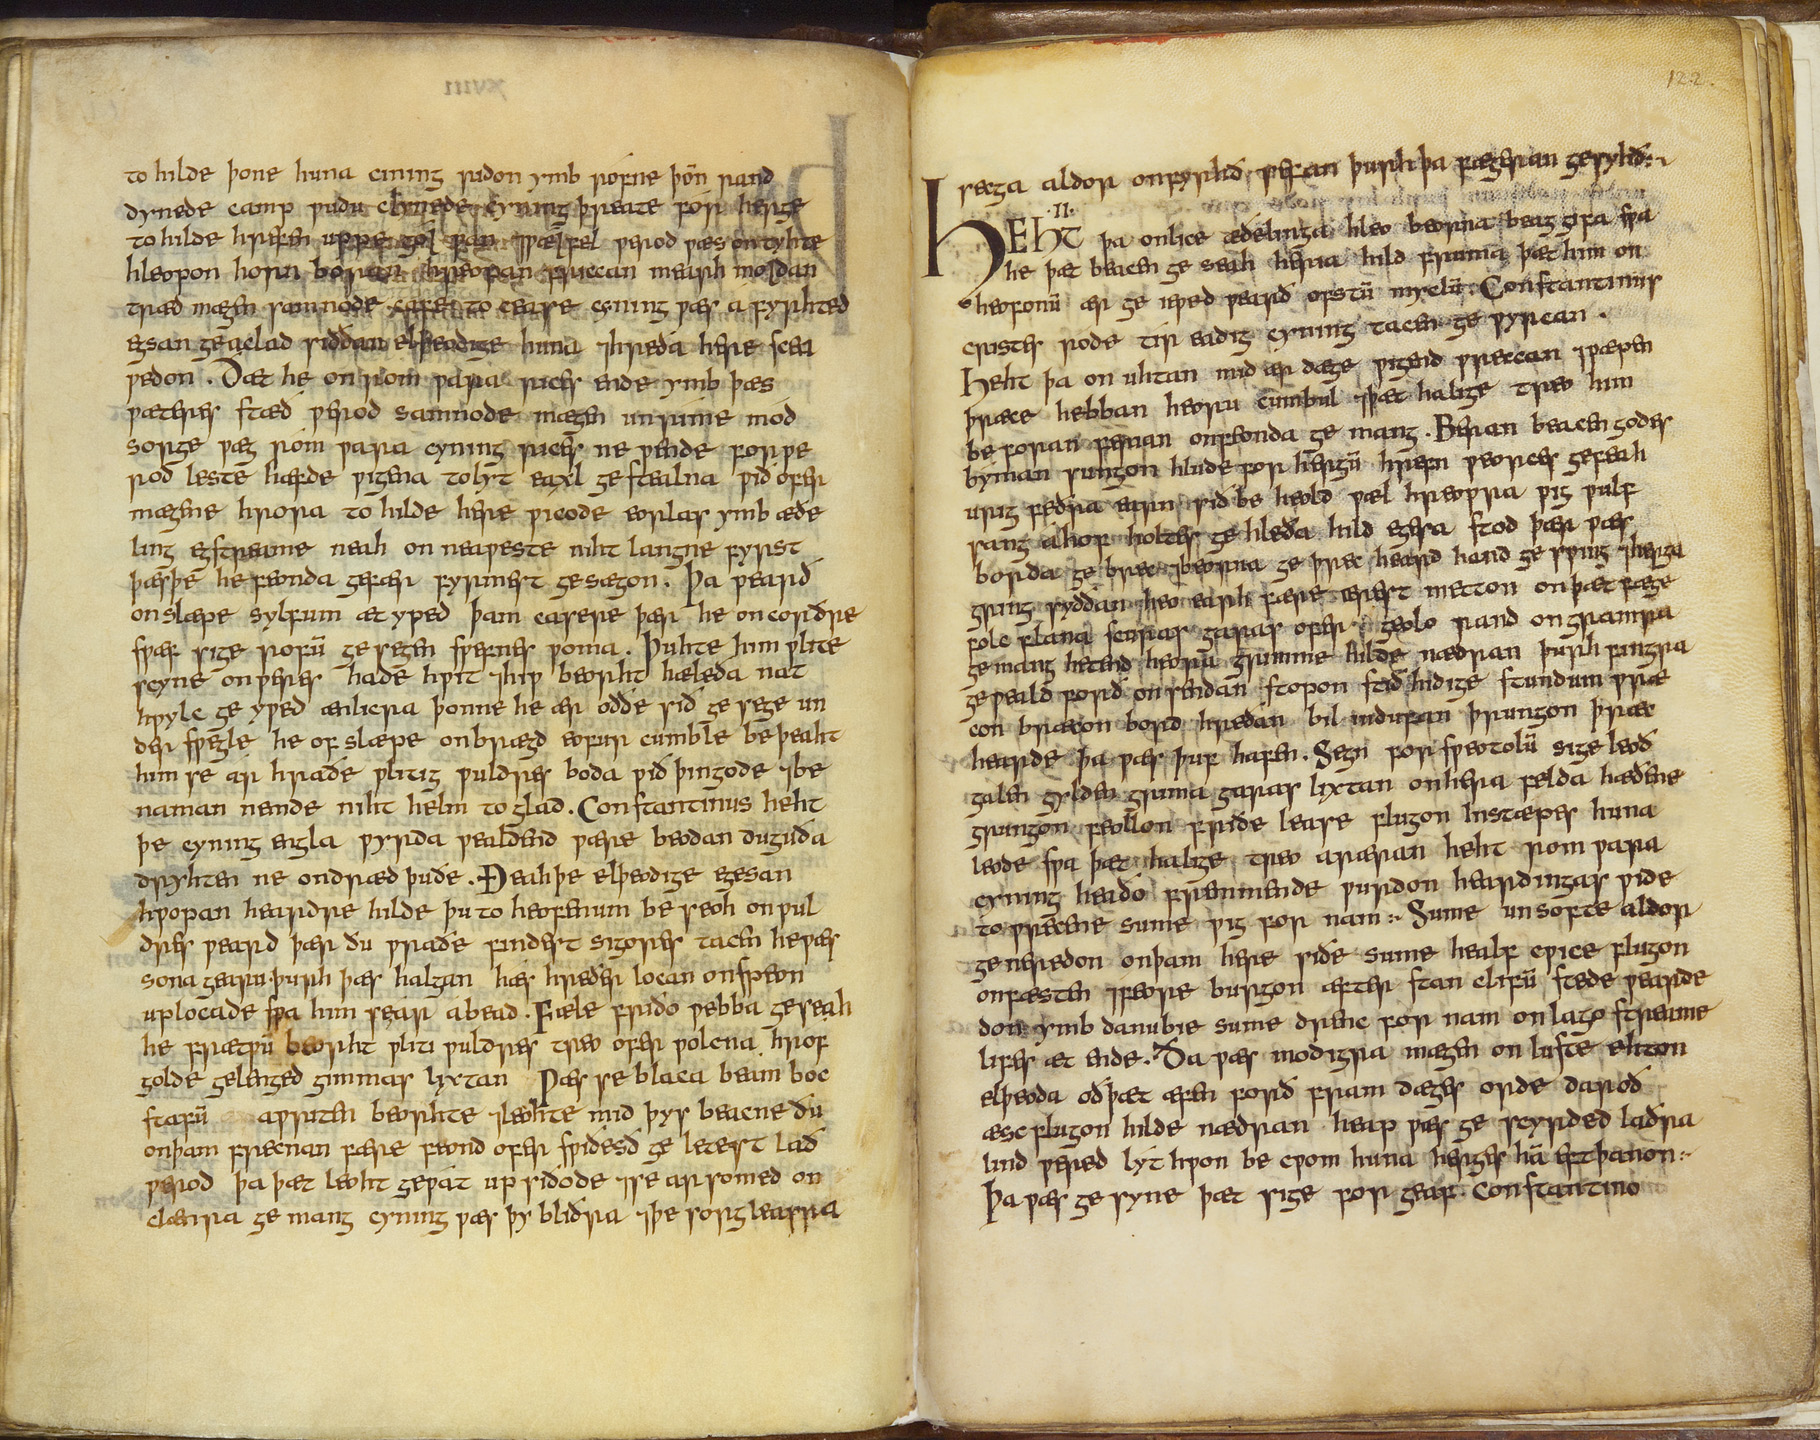 xviii
to hilde þone huna cining ridon ymb rofne þoñ rand
dynede camp ƿudu clynede cyning þreate for herge
to hilde hrefen uppe gol ƿan ⁊ƿælfel ƿerod ƿæs on tyhte
hleopon horn boran hreopan friccan mearh moldan
træd mægen samnode cafe to cease cyning ƿæs afyrhted
egsan geaclad siððan elþeodige huna ⁊hreða here scea
ƿedon. Ðæt he on rom ƿara rices ende ymb þæs
ƿæteres stæð ƿerod samnode mægen unrime mod
sorge ƿæg rom ƿara cyning rices ne ƿende for ƿe
rod leste hæfde ƿigena to lyt eaxl gestealna ƿið ofer
mægene hrora to hilde here ƿicode eorlas ymb æðe
ling egstreame neah on neaƿeste niht langne fyrst
þæs þe hie feonda gefær fyrmest gesægon. Þa ƿearð
on slæpe sylfum ætyƿed þam casere þær he on corðre
sƿæf sige rofū ge segen sƿefnes ƿoma. Þuhte him ƿlite
scyne on ƿeres hade hƿit ⁊hiƿ beorht hæleða nat
hƿylc ge yƿed ænlicra þonne he ær oððe sið ge sege un
der sƿegle he of slæpe onbrægd eofur cumble be þeaht
him se ar hraðe ƿlitig ƿuldres boda ƿið þingode ⁊be
naman nemde niht helm to glad. Constantinus heht
þe cyning engla ƿyrda ƿealdend ƿære beodan duguða
dryhten ne ondræd þuðe. Ðeah þe elþeodige egesan
hƿopan heardre hilde þu to heofenum beseoh on ƿul
dres ƿeard þær ðu ƿraðe findest sigores tacen he ƿæs
sona gearu þurh þæs halgan hæs hreðer locan onsƿeon
up locade sƿa him se ar abead. Fæle friðo ƿebba geseah
he frætƿū beorht ƿliti ƿuldres treo ofer ƿolcna hrof
golde gelenged gimmas lixtan Ƿæs se blaca beam boc
stafū aƿriten beorhte ⁊leohte mid þys beacne ðu
on þam frecnan fære feond oferswiðesð ge letest lað
ƿerod þa þæt leoht geƿat up siðode ⁊se ar somed on
clænra ge mang cyning ƿæs þy bliðra ⁊þe sorg leasra
122.
secga aldor on fyrhð sefan þurh þa fægeran gesyhð:⁊
·II·
HEHT þa onlice æðelinga hleo beorna beag gifa sƿa
he þæt beacen ge seah heria hild fruma þæt him on
heofonū ær ge iewed ƿearð ofstū myclū. Constantinus
cristes rode tir eadig cyning tacen ge ƿyrcan.
Heht þa on uhtan mid ær dæge ƿigend ƿreccan ⁊ƿæpen
þræce hebban heoru cumbul ⁊þæt halige treo him
be foran ferian on feonda ge mang. Beran beacen godes
byman sungon hlude for hergū hrefn ƿeorces gefeah
urig feðra earn sið be heold ƿæl hreoƿra ƿig ƿulf
sang ahof holtes ge hleða hild egesa stod þær ƿæs
borda ge brec ⁊beorna ge þrec heard hand ge sƿing ⁊herga
gring syððan heo earh fære ærest metton on þæt fæge
folc flana scuras garas ofer geolo rand on gramra
gemang hetend heoru grimme hilde nædran þurh fingra
geƿeald forð onsendan stopon stið hidige stundum ƿræ
con bræcon bord hreðan bil in dufan þrungon þræc
hearde þa ƿæs þuf hafen. Segn for sƿeotolū sige leoð
galen gylden grima garas lixtan on here felda hæðene
grungon feollon friðe lease flugon Instæpes huna
leode sƿa þæt halige treo aræran heht rom ƿara
cyning heaðo fremmende ƿurdon heardingas ƿide
to ƿrecene sume ƿig for nam:⁊ Sume unsofte aldor
generedon on þam here siðe sume healf cƿice flugon
on fæsten ⁊feore burgon æfter stan clifū stede ƿearde
don ymb danubie sume drenc for nam on lago streame
lifes æt ende. Ða ƿæs modigra mægen on luste ehton
elþeoda oð þæt æfen forð fram dæges orde daroð
æsc flugon hilde nædran heap ƿæs ge scyrded laðra
lind ƿered lyt hƿon be cƿom huna herges hā eft þanon:⁊
Þa ƿæs ge syne þæt sige for geaf constantino